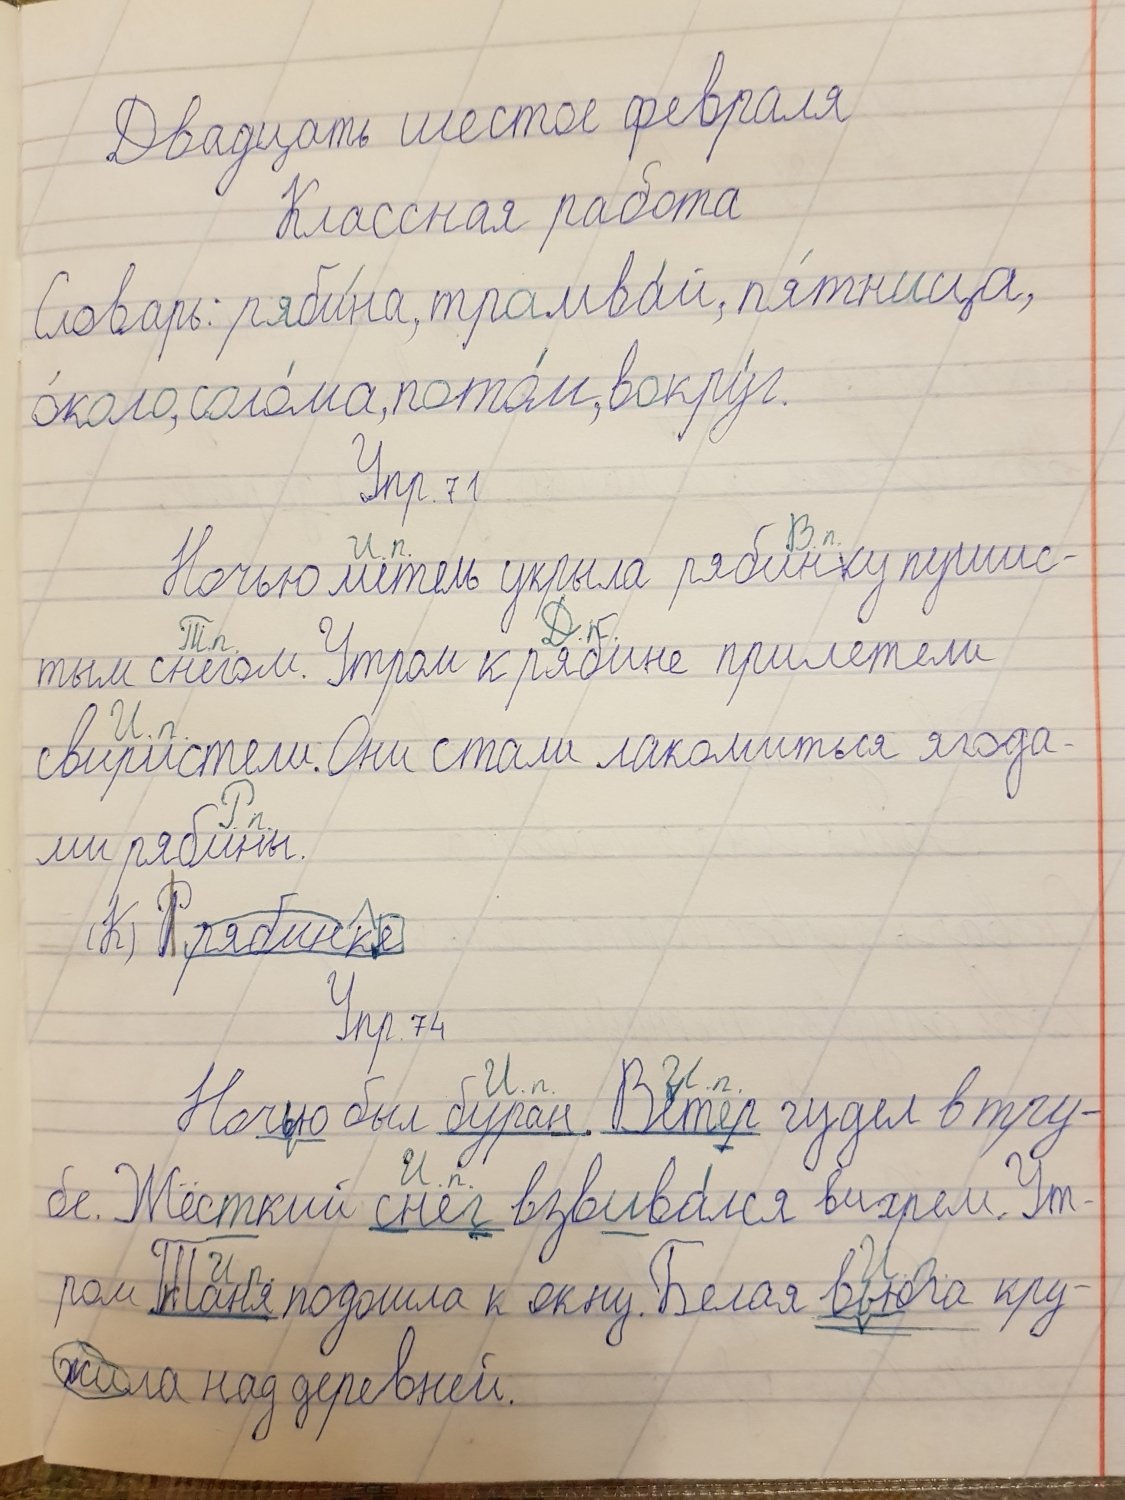 Двадцать шестое февраля
Классная работа
Словарь: ряби́на, трамва́й, пя́тница,
о́коло, соло́ма, пото́м, вокру́г.
Упр. 71
И. п. В. п.
Ночью метель укрыла рябинку пушис-
Т. п. Д. п.
тым снегом. Утром к рябине прилетели
И. п.
свиристели. Они стали лакомиться ягода-
Р. п.
ми рябины.
(К) рябинке
Упр. 74
И. п. И. п.
Ночью был буран. Ветер гудел в тру-
И. п.
бе. Жёсткий снег взвива́лся вихрем. Ут-
И. п. И. п.
ром Таня подошла к окну. Белая вьюга кру-
жила над деревней.